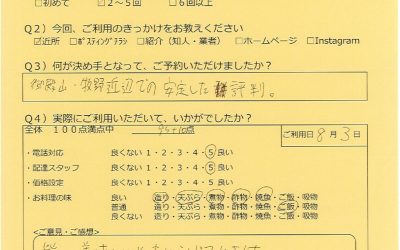 □初めて ☑2～5回 □6回以上
Q２）今回、ご利用のきっかけをお教えください
☑近所 □ﾎﾟｽﾃｨﾝｸﾞﾁﾗｼ □紹介（知人・業者） □ホームページ □Instagram
Q３）何が決め手となって、ご予約いただけましたか？
御殿山・牧野近辺での安定した評判。
Q４）実際にご利用いただいて、いかがでしたか？
全体 １００点満点中 点
ご利用日 8月3日
・電話対応 良くない１・２・３・４・⑤良い
・配達スタッフ 良くない１・２・３・４・⑤良い
・価格設定 良くない１・２・３・４・⑤良い
・お料理の味 良い 造り・天ぷら・煮物・酢物・焼魚・ご飯・吸物
普通 造り・天ぷら・煮物・酢物・焼魚・ご飯・吸物
良くない 造り・天ぷら・煮物・酢物・焼魚・ご飯・吸物
<ご意見・ご感想>